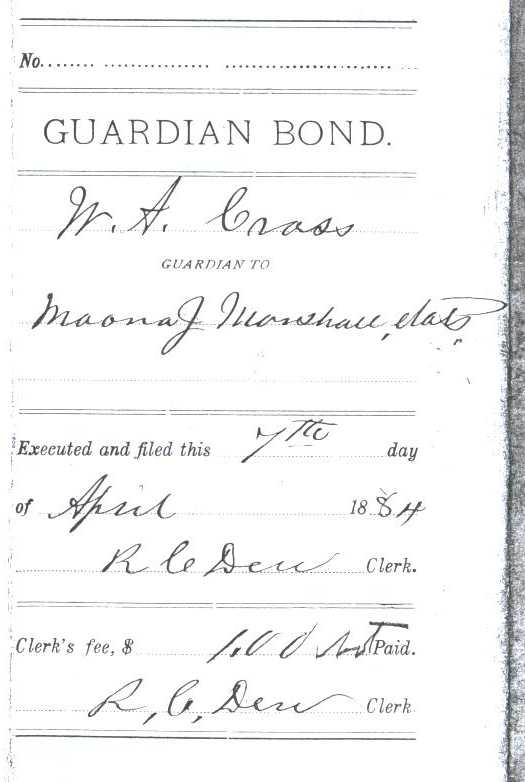 No.
GUARDIAN BOND.
W. A. Cross
GUARDIAN TO
Maona J Marshall,
Executed and filed this 7th day
of April 1884
R C Dew Clerk.
Clerk's fee, $ 1.00 not Paid.
R, C, Dew Clerk